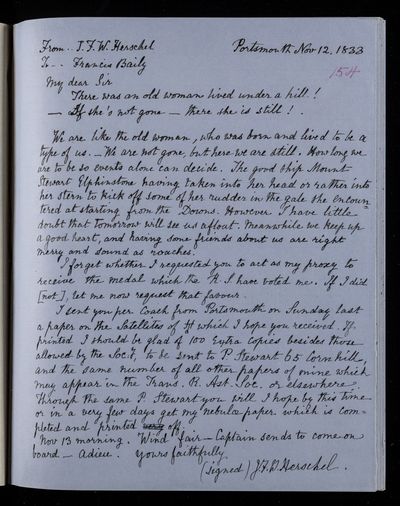 From .. J. F. W. Herschel Portsmouth Nov 12, 1833
To - - Francis Baily
154
My dear Sir
There was an old woman lived under a hill!
— If she's not gone — there she is still!.
We are like the old woman, who was born and lived to be a
type of us. — We are not gone, but here we are still. How long we
are to be so events alone can decide. The good ship Mount-
Stewart Elphinstone having taken into her head or rather into
her stern to kick off some of her rudder in the gale she encoun-
tered at starting from the Downs. However I have little
doubt that tomorrow will see us afloat. Meanwhile we keep up
a good heart, and having some friends about us are right
merry and sound as roaches.
I forget whether I requested you to act as my proxy to
receive the medal which the R. S. have voted me. If I did
[not], let me now request that favour.
I sent you per Coach from Portsmouth on Sunday last
a paper on the Satellites of ♅ which I hope you received. If
printed I should be glad of 100 Extra Copies besides those
allowed by the Socy, to be sent to P. Stewart 65 Cornhill,
and the same number of all other papers of mine which
may appear in the Trans. R. Ast. Soc. or elsewhere.
Through the same P. Stewart you will I hope by this time
or in a very few days get my nebulæ paper which is com-
pleted and printed off.
Nov 13 morning. Wind fair — Captain sends to come on
board — Adieu. Yours faithfully
(signed) J. F. W. Herschel.